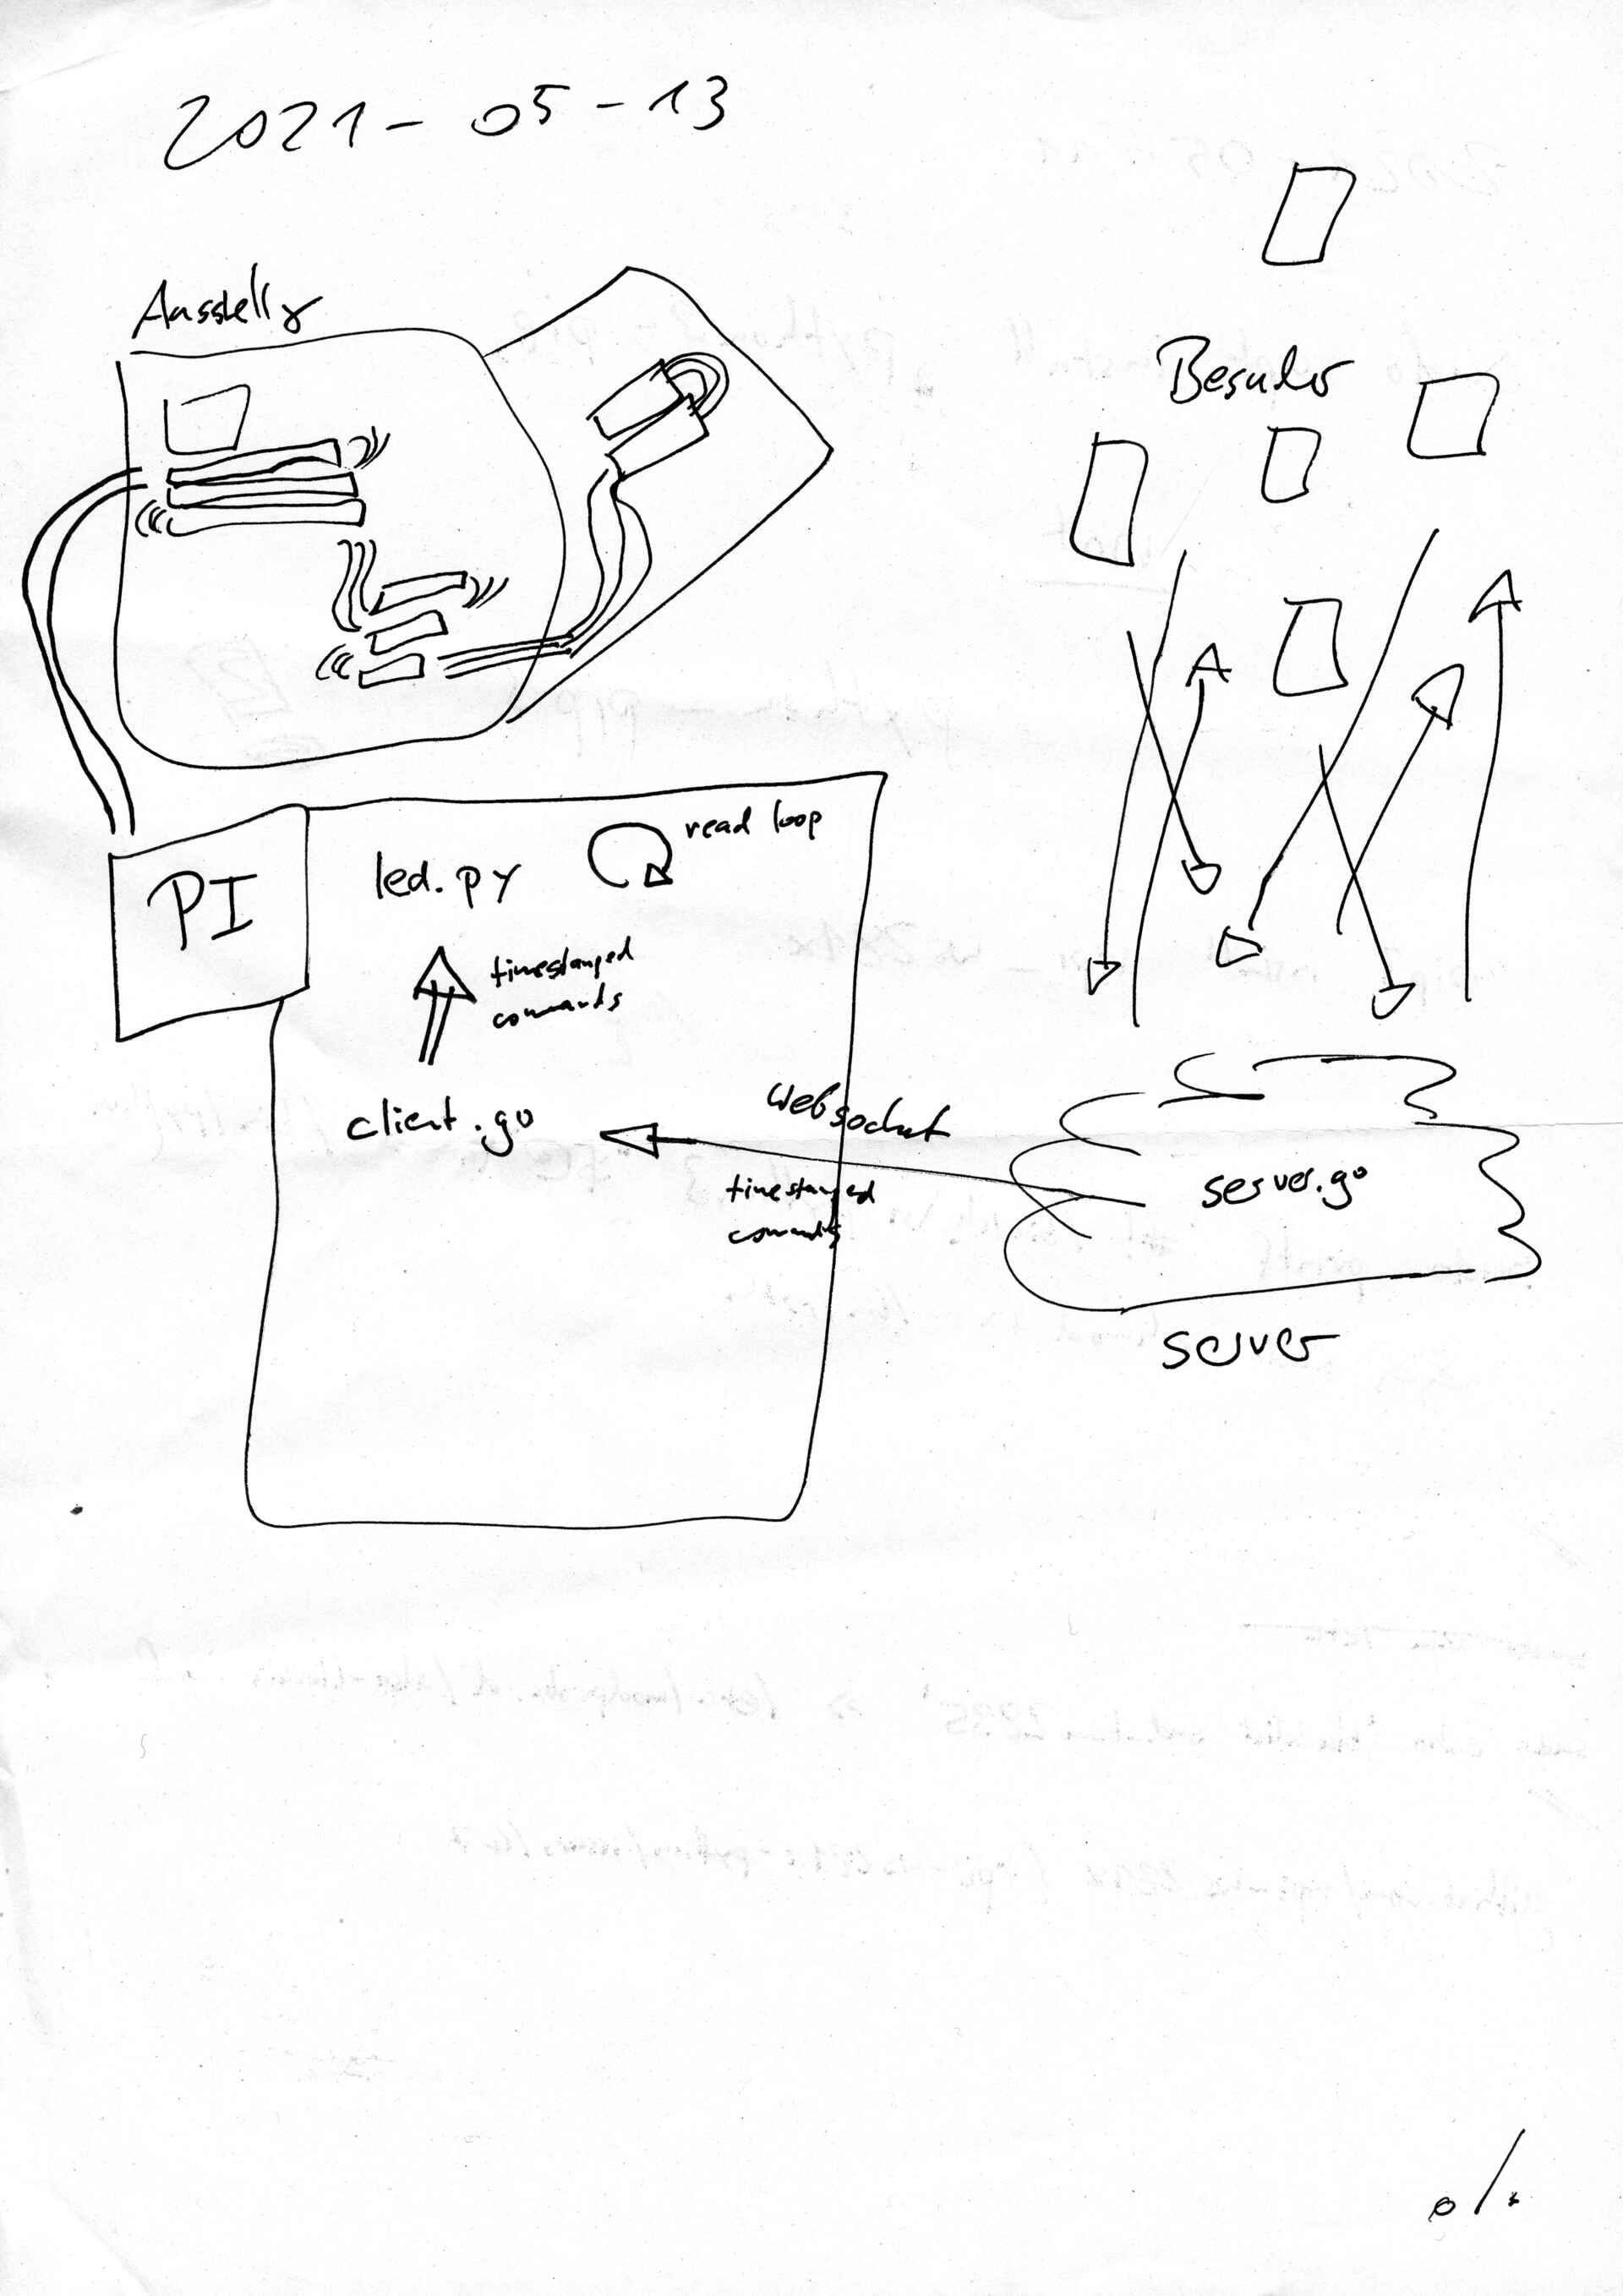 2021-05-13
Ausstellg
Besucher
PI
led.py
read loop
timestamped
commands
client.go
Websocket
timestamped
commands
server.go
server